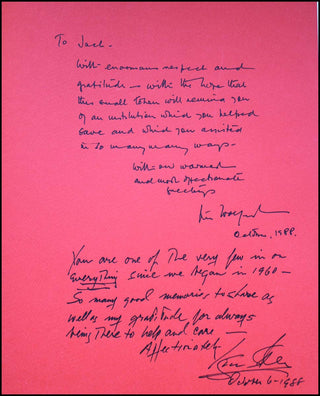 To Jack -
With enormous respect and
gratitude — with the hope that
this small token will remind you
of an institution which you helped
save and which you assisted
in so many many ways.
With our warmest
and most affectionate
greetings
October, 1988.
You are one of the very few in on
everything since we began in 1960 —
So many good memories to share as
well as my gratitude for always
being there to help and care —
Affectionately
October 6 - 1988